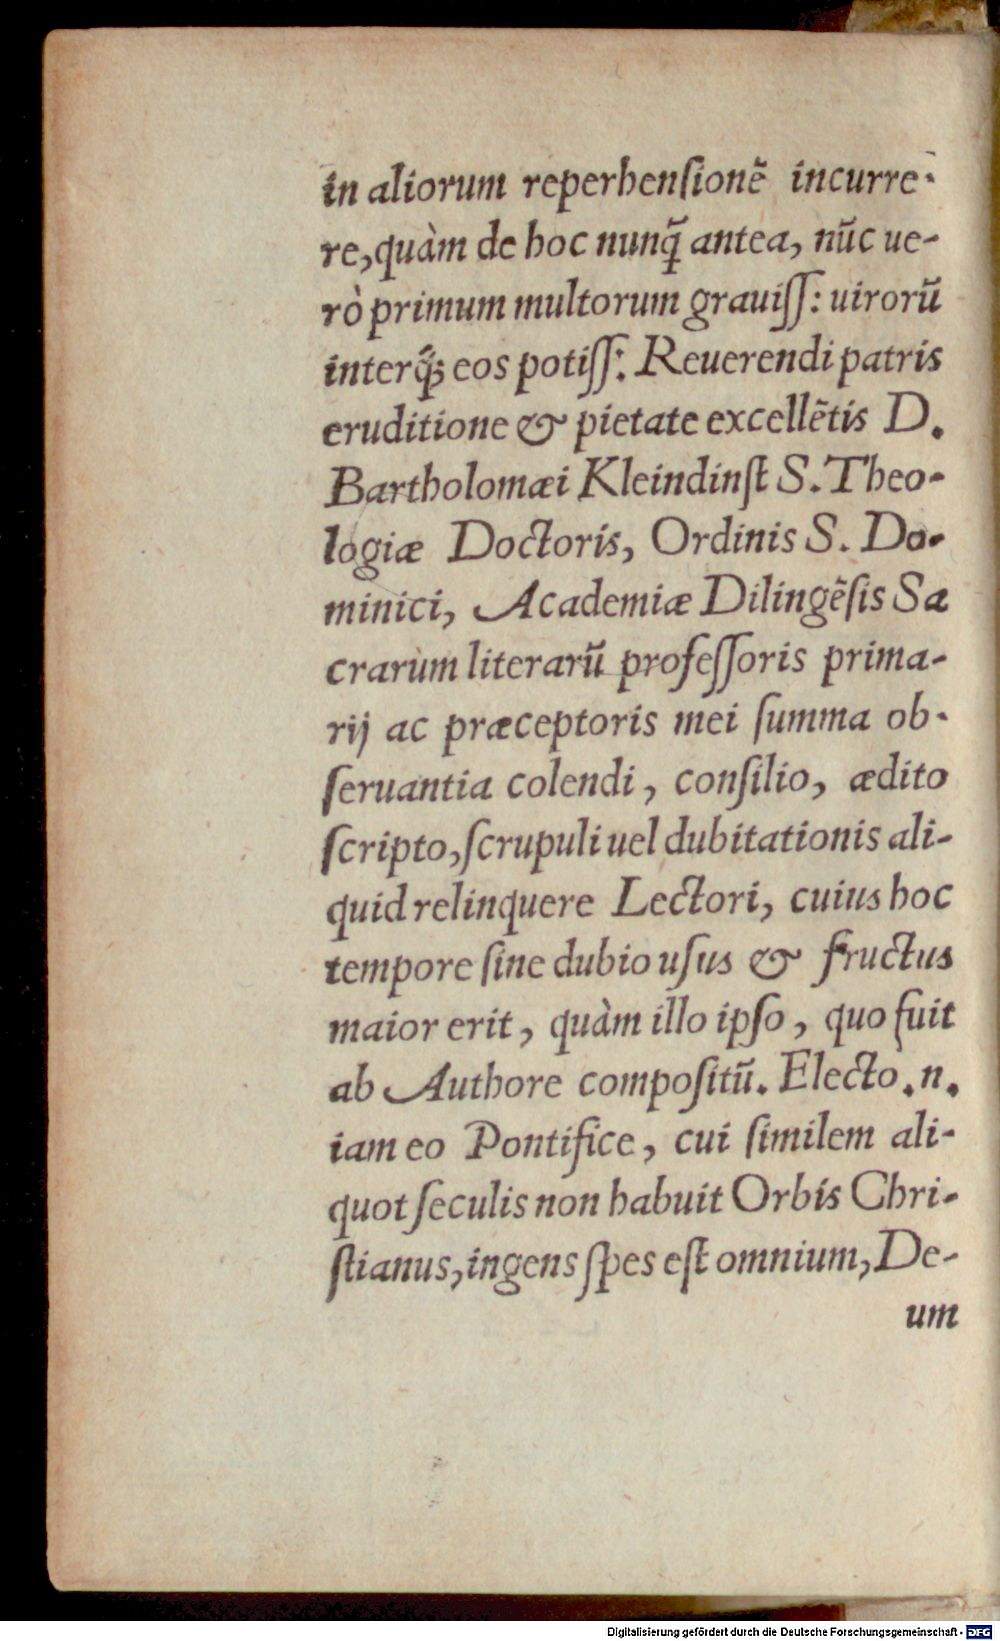 in aliorum reperhenſionẽ incurre-
re,quàm de hoc nunq̃ antea, nũc ue-
rò primum multorum grauiſſ: uirorũ
interq́; eos potiſſ: Reuerendi patris
eruditione & pietate excellẽtis D.
Bartholomæi Kleindinſt S. Theo-
logiæ Doctoris, Ordinis S. Do-
minici, Academiæ Dilingẽſis Sa
crarum literarũ profeſſoris prima-
rij ac præceptoris mei ſumma ob-
ſeruantia colendi, conſilio, ædito
ſcripto,ſcrupuli uel dubitationis ali-
quid relinquere Lectori, cuius hoc
tempore ſine dubio uſus & fructus
maior erit, quàm illo ipſo, quo fuit
ab Authore compoſitũ. Electo .n.
iam eo Pontifice, cui ſimilem ali-
quot ſeculis non habuit Orbis Chri-
ſtianus,ingens ſpes eſt omnium,De-
um
Digitalisierung gefördert durch die Deutsche Forschungsgemeinschaft - DFG